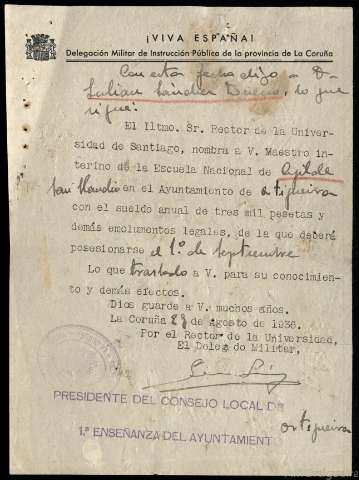 ¡VIVA ESPAÑA!
Delegación Militar de Instrucción Pública de la provincia de La Coruña
Con esta fecha digo a D.
Julian Sánchez Bueno, lo que
sigue:
El Iltmo. Sr. Rector de la Univer-
sidad de Santiago, nombra a V. Maestro in-
terino de la Escuela Nacional de
San Claudio en el Ayuntamiento de Ortigueira
con el sueldo anual de tres mil pesetas y
demás emolumentos legales, de la que deberá
posesionarse el 1º de septiembre
Lo que traslado a V. para su conocimien-
to y demás efectos.
Dios guarde a V. muchos años.
La Coruña 28 de agosto de 1938.
Por el Rector de la Universidad,
El Delegado Militar,
PRESIDENTE DEL CONSEJO LOCAL DE
1.ª ENSEÑANZA DEL AYUNTAMIENT Ortigueira